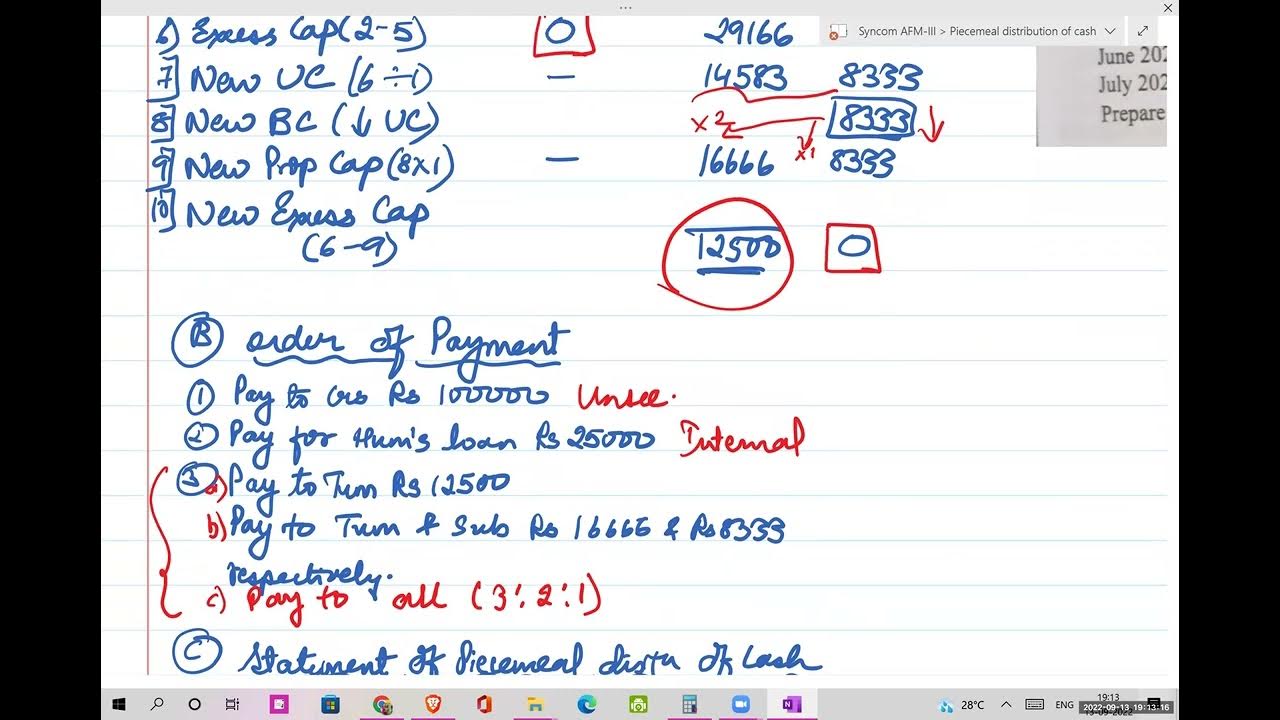 6) Excess Cap (2-5) 0 29166
Syncom AFM-III > Piecemeal distribution of cash
7] New UC (6÷1) — 14583 8333
8] New BC (↓ UC) x2 x1 8333 ↓
9] New Prop Cap (8x1) — 16666 8333
10] New Excess Cap
(6-9) 12500 0
June 202
July 202
Prepare
B order of Payment
1 Pay to Crs Rs 100000 Unsec.
2 Pay for Hum's loan Rs 25000 Internal
3 a) Pay to Tum Rs 12500
b) Pay to Tum & Sub Rs 16666 & Rs 8333
respectively.
c) Pay to all (3:2:1)
C Statement of Piecemeal distn of Cash
28°C
ENG
19:13
2022-09-13 19:13:16